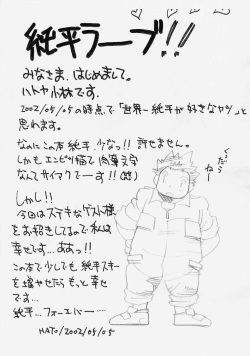 純平ラーブ!!
みなさま、はじめまして。
ハトヤ小林です。
2002/05/05の時点で「世界一純平が好きなヤツ」と
思われます。
なのにこの本純平少なっ!! 許せません。
しかもエンピツ描で肉筆文字
なんてサイアクでーす!!
しかし!!
今回はステキなゲスト様
をお招きしてるので私は
幸せです…ああっ!!
この本で少しでも純平スキー
を増やせたらもっと幸せ
です…
純平…フォーエバー……
HATO/2002/05/05
くだらねー